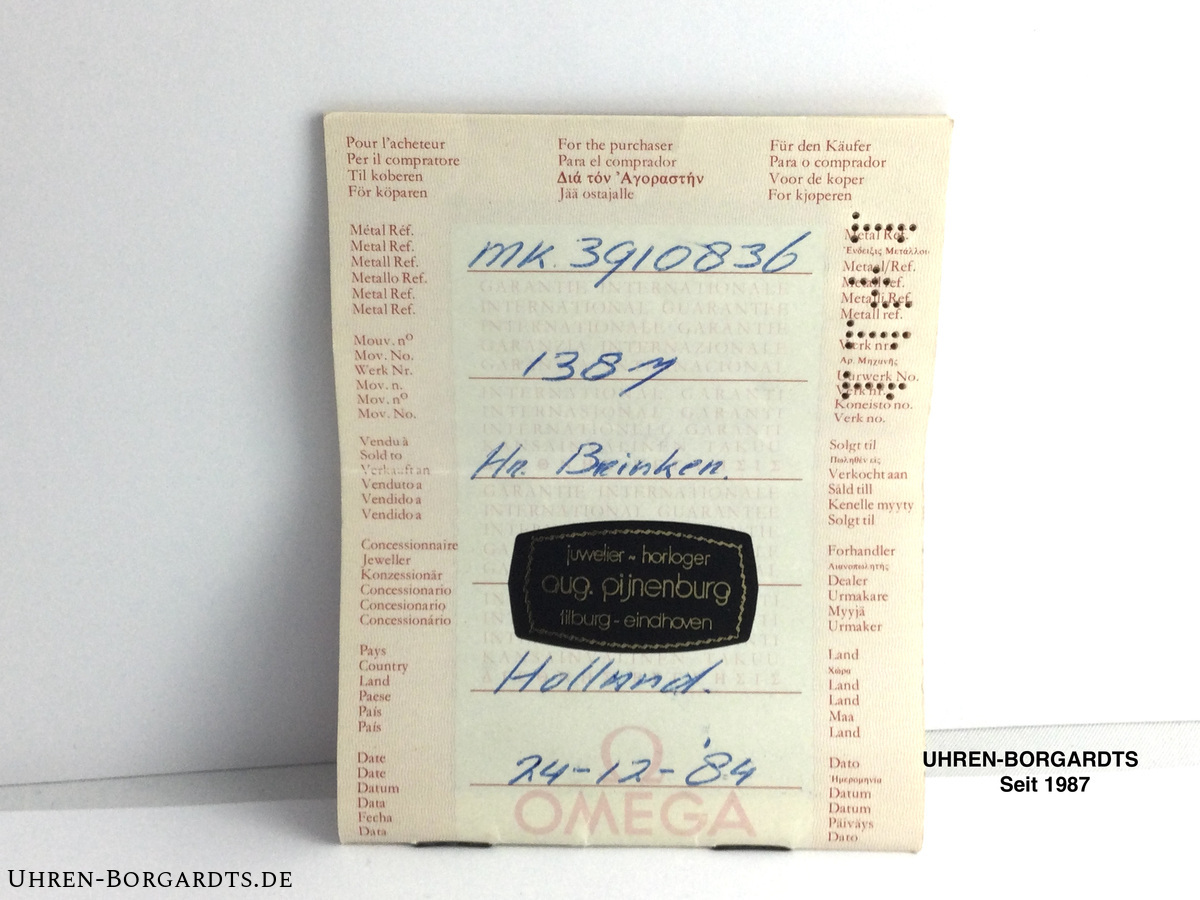 Pour l'acheteur
Per il compratore
Til køberen
För köparen
For the purchaser
Para el comprador
Διά τόν 'Αγοραστήν
Jää ostajalle
Für den Käufer
Para o comprador
Voor de koper
For kjøperen
Métal Réf.
Metal Ref.
Metall Ref.
Metallo Ref.
Metal Ref.
Metal Ref.
MK. 3910836
Metal Ref.
Ένδειξις Μετάλλου
Metaal/Ref.
Metall ref.
Metalli Ref.
Metall ref.
GARANTIE INTERNATIONALE
INTERNATIONAL GUARANTEE
INTERNATIONALE GARANTIE
GARANZIA INTERNAZIONALE
Mouv. nº
Mov. No.
Werk Nr.
Mov. n.
Mov. nº
Mov. No.
1387
Verk nr.
Αρ. Μηχανῆς
Uurwerk No.
Verk nr.
Koneisto no.
Verk no.
Vendu à
Sold to
Verkauft an
Venduto a
Vendido a
Vendido a
Hr. Brinken.
Solgt til
Πωληθέν εἰς
Verkocht aan
Såld till
Kenelle myyty
Solgt til
GARANTIE INTERNATIONALE
INTERNATIONAL GUARANTEE
Concessionnaire
Jeweller
Konzessionär
Concessionario
Concesionario
Concessionário
juwelier ~ horloger
aug. pijnenburg
tilburg - eindhoven
Forhandler
Dealer
Urmakare
Myyjä
Urmaker
Pays
Country
Land
Paese
País
País
Holland.
Land
Χώρα
Land
Land
Maa
Land
Date
Date
Datum
Data
Fecha
Data
24-12-'84
Ω
OMEGA
Dato
Ἡμερομηνία
Datum
Datum
Päiväys
Dato
UHREN-BORGARDTS
Seit 1987
UHREN-BORGARDTS.DE